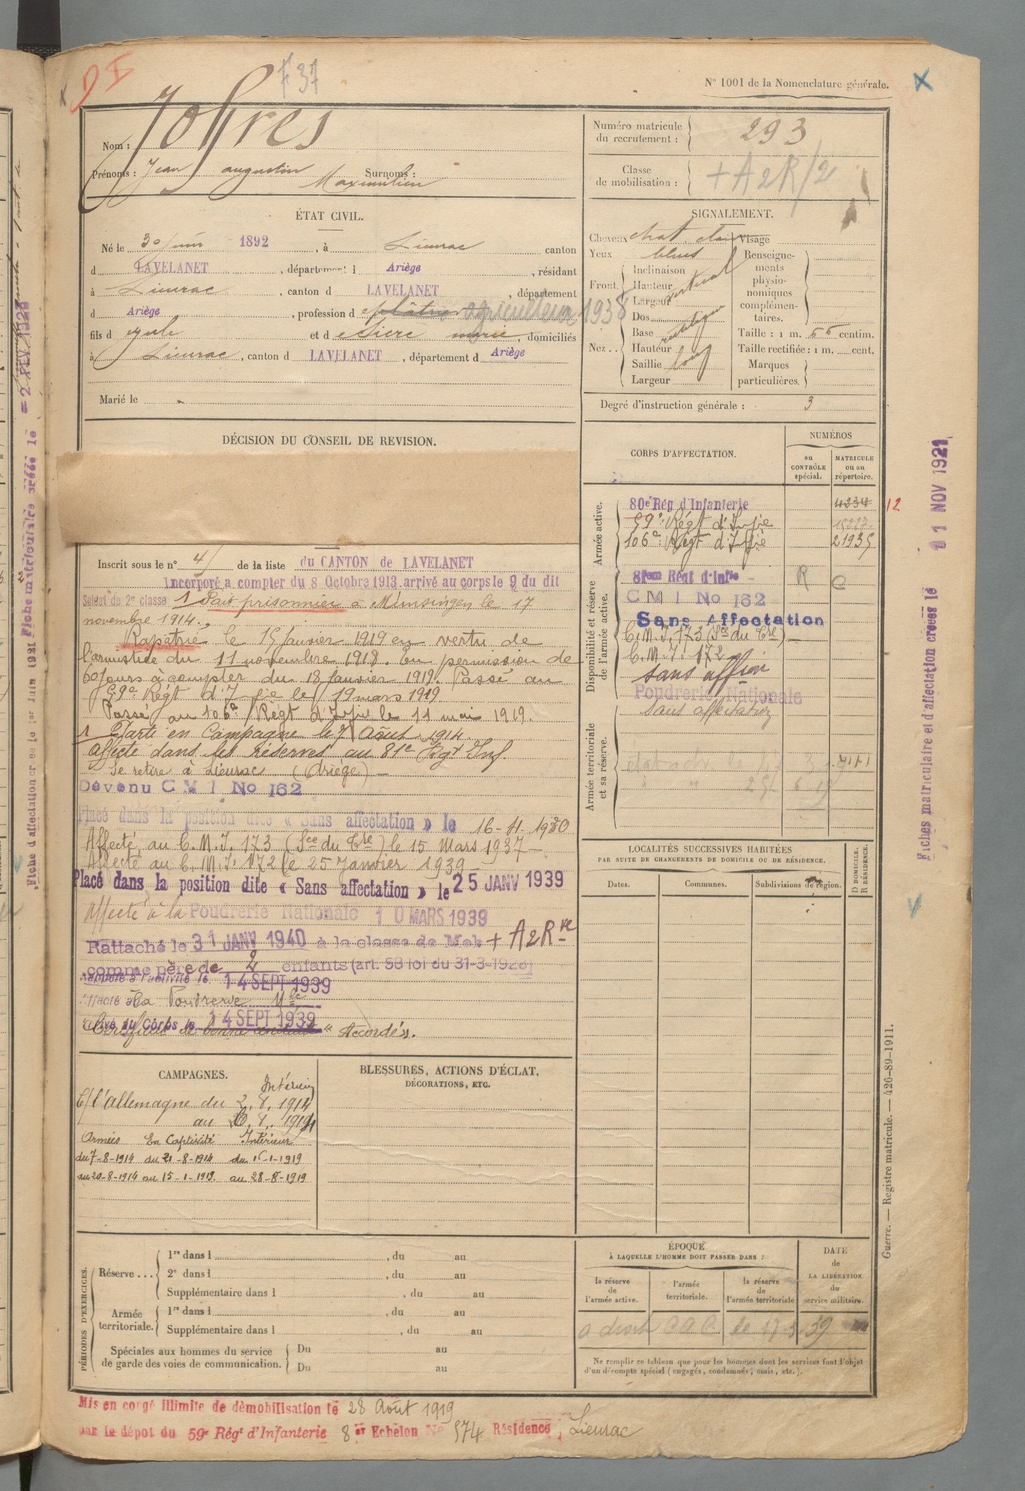 F 37
N° 1001 de la Nomenclature générale.
Nom : Joffres
Prénoms : Jean augustin Maximilien Surnoms :
Numéro matricule du recrutement : 293
Classe de mobilisation : + A2R/2
ÉTAT CIVIL.
Né le 30 juin 1892, à Lieurac canton
d LAVELANET, département d Ariège, résidant
à Lieurac, canton d LAVELANET, département
d Ariège, profession d plâtrier agriculteur 1938
fils d et d marie, domiciliés
à Lieurac, canton d LAVELANET, département d Ariège
Marié le
SIGNALEMENT.
Cheveux chat clair Visage
Yeux bleus
Front. Inclinaison
Hauteur vertical
Largeur
Nez.. Dos
Base
Hauteur
Saillie long
Largeur
Renseignements physionomiques complémentaires.
Taille : 1 m. 66 centim.
Taille rectifiée : 1 m. cent.
Marques particulières.
Degré d'instruction générale : 3
DÉCISION DU CONSEIL DE REVISION.
Inscrit sous le n° 41 de la liste du CANTON de LAVELANET
Incorporé à compter du 8 Octobre 1913, arrivé au corps le 9 du dit
Soldat de 2e classe Fait prisonnier à Munsingen le 17
novembre 1914.
Rapatrié le 15 janvier 1919 en vertu de
l'armistice du 11 novembre 1918. En permission de
60 jours à compter du 18 janvier 1919. Passé au
59e Régt d'Infie le 19 mars 1919
Passé au 106e Régt d'Infie le 11 mai 1919.
Parti en Campagne le 7 Août 1914
affecté dans les réserves au 81e Régt Inf.
Se retire à Lieurac (Ariège)
Devenu C M I No 162
Placé dans la position dite « Sans affectation » le 16-11-1930
Affecté au C.M.I. 173 (Sce du Cre) le 15 Mars 1937
Affecté au C.M.I. 172 le 25 Janvier 1939
Placé dans la position dite « Sans affectation » le 25 JANV 1939
Affecté à la Poudrerie Nationale 10 MARS 1939
Rattaché le 31 JANV 1940 à la classe de Mob + A2Rve
comme père de 2 enfants (art. 58 loi du 31-3-1928)
Rappelé à l'activité le 14 SEPT 1939
Affecté à la Poudrerie Nle
Arrivé au Corps le 14 SEPT 1939
Certificat de bonne conduite " Accordé".
CORPS D'AFFECTATION.
NUMÉROS
au CONTRÔLE spécial.
MATRICULE ou au répertoire.
Armée active.
80e Rég d'Infanterie 4234 12
59e Régt d'Infie
106e Régt d'Infie 21935
Disponibilité et réserve de l'armée active.
81eme Régt d'Infie R C
C M I No 162
Sans Affectation
C.M.I. 173 (Sce du Cre)
C.M.I. 172
sans affion
Poudrerie Nationale
Sans affectation
Armée territoriale et sa réserve.
LOCALITÉS SUCCESSIVES HABITÉES
PAR SUITE DE CHANGEMENTS DE DOMICILE OU DE RÉSIDENCE.
Dates.
Communes.
Subdivisions de région.
D DOMICILE. R RÉSIDENCE.
CAMPAGNES.
Intérieur
C/ l'Allemagne du 2.8.1914
au 6.8.1914
Armées En Captivité Intérieur
du 7-8-1914 du 21-8-1914 du 16-1-1919
au 20-8-1914 au 15-1-1919 au 28-8-1919
BLESSURES, ACTIONS D'ÉCLAT,
DÉCORATIONS, ETC.
PÉRIODES D'EXERCICES.
Réserve... 1re dans l , du au
2e dans l , du au
Supplémentaire dans l , du au
Armée territoriale. 1re dans l , du au
Supplémentaire dans l , du au
Spéciales aux hommes du service de garde des voies de communication. Du au
Du au
ÉPOQUE
À LAQUELLE L'HOMME DOIT PASSER DANS :
la réserve de l'armée active.
l'armée territoriale.
la réserve de l'armée territoriale
DATE de LA LIBÉRATION du service militaire.
a droit C A C le 17-3-39
Ne remplir ce tableau que pour les hommes dont les services font l'objet
d'un décompte spécial (engagés, condamnés, omis, etc.).
Mis en congé illimité de démobilisation le 28 Août 1919
par le dépot du 59e Régt d'Infanterie 8er Echelon No 574 Résidence Lieurac
Guerre. — Registre matricule. — 426-89-1911.
Fiches matriculaire et d'affectation créées le 11 NOV 1921
Fiche d'affectation créée le 1er Juin 1921
Fiche matriculaire créée le = 2 FEV 1928